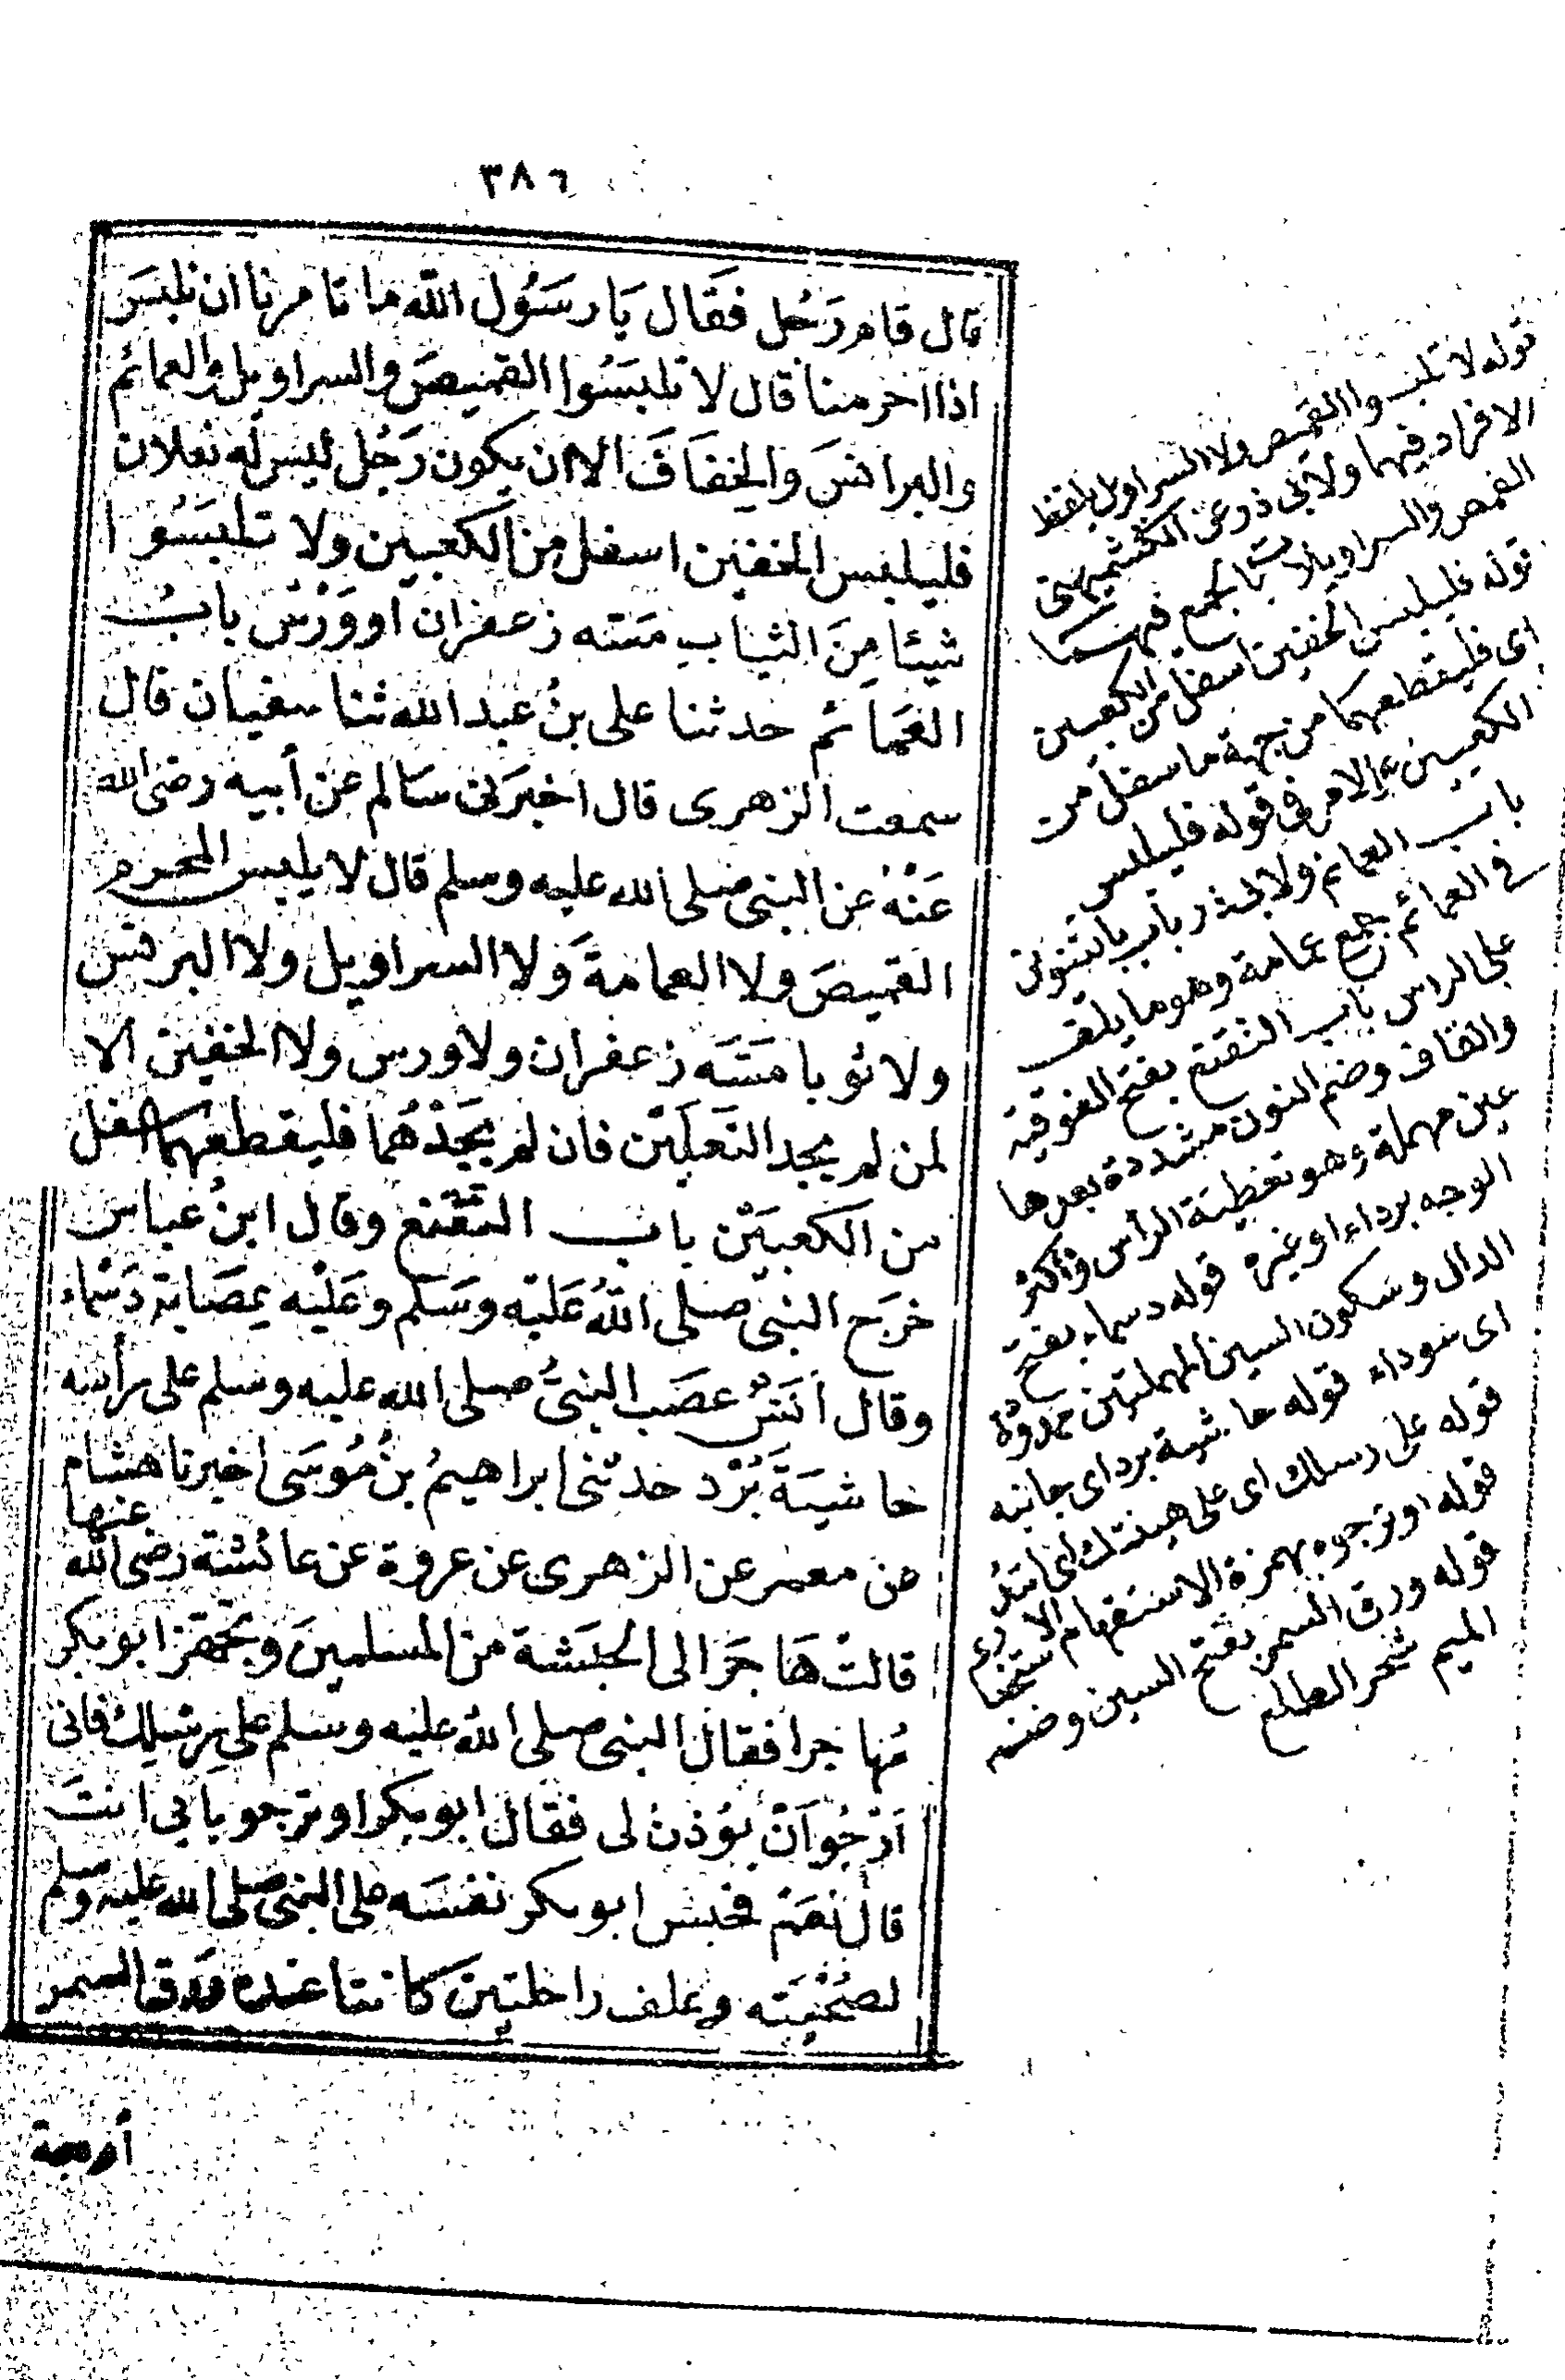 ٣٨٦
قال قام رَجُل فقَال يَا رسَوُل الله ما تامرنا ان نلبسَ
اذا احرمنا قال لا تلبسَوُا القميصَ والسراويل والعمائم
والبرانسَ والخفافَ الا ان يكون رَجُل ليس له نعلان
فليلبس الخفين اسفل من الكعبين ولا تلبسَوُا
شيئا مِنَ الثياب مسّه زعفران او وَرْس بابُ
العَمائم حدثنا على بنُ عبد الله ثنا سفيان قال
سمعت الزهرى قال اخبرَنى سَالم عن أبيه رضى الله
عَنْهُ عن النبى صلى الله عليه وسلم قال لا يلبس المحرم
القميصَ ولا العمامةَ ولا السراويل ولا البرنس
ولا ثوبا مسَّه زعفران ولا ورس ولا الخفين الا
لمن لم يجد النَعلَيْن فان لم يَجِدْهُما فليقطعهما اسفل
من الكعبَيْن باب التقَنّع وقال ابنُ عباس
خرَج النبى صلى اللهُ عَليْه وسَلم وعَلَيْه عِصَابة دَسْماء
وقال أنَسٌ عصَب النبىُّ صلى الله عليه وسلم على رأسه
حاشيَةَ بُرْد حدثنى ابراهيمُ بنُ مُوسَى اخبرنا هشام
عن معمر عن الزهرى عن عروة عن عائشة رضى الله عنها
قالتْ هَاجَرَ الى الحبَشة من المسلمينَ وتَجَهّز ابو بكر
مُهاجرا فقال النبى صلى الله عليه وسلم على رِسْلِك فانى
اَرْجُو اَنْ يُوذنَ لى فقال ابو بكر او ترجو بابى انت
قال نعَمْ فحبس ابو بكر نفسَه على النبى صلى الله عليه وسلم
لصُحْبَته وعلف راحلتين كانتا عنده ورق السمر
أربعة
قوله لا تلبسوا القميص ولا السراويل بلفظ
الافراد فيهما ولابى ذر عن الكشميهنى
القمص والسراويلات بالجمع فيهما
قوله فليلبس الخفين اسفل من الكعبين
اى فليقطعهما من جهة ما سفل من
الكعبين والامر فى قوله فليلبس
باب العمائم ولابى ذر باب بالتنوين
فى العمائم جمع عمامة وهو ما يلف
على الراس باب التقنع بفتح الفوقية
والقاف وضم النون مشددة بعدها
عين مهملة وهو تغطية الرأس واكثر
الوجه برداء او غيره قوله دسماء بفتح
الدال وسكون السين المهملتين ممدودة
اى سوداء قوله حاشية برد اى جانبه
قوله على رسلك اى على هينتك اى اتئد
قوله او ترجوه بهمزة الاستفهام الاستخبارى
قوله ورق السمر بفتح السين وضم
الميم شجر الطلح